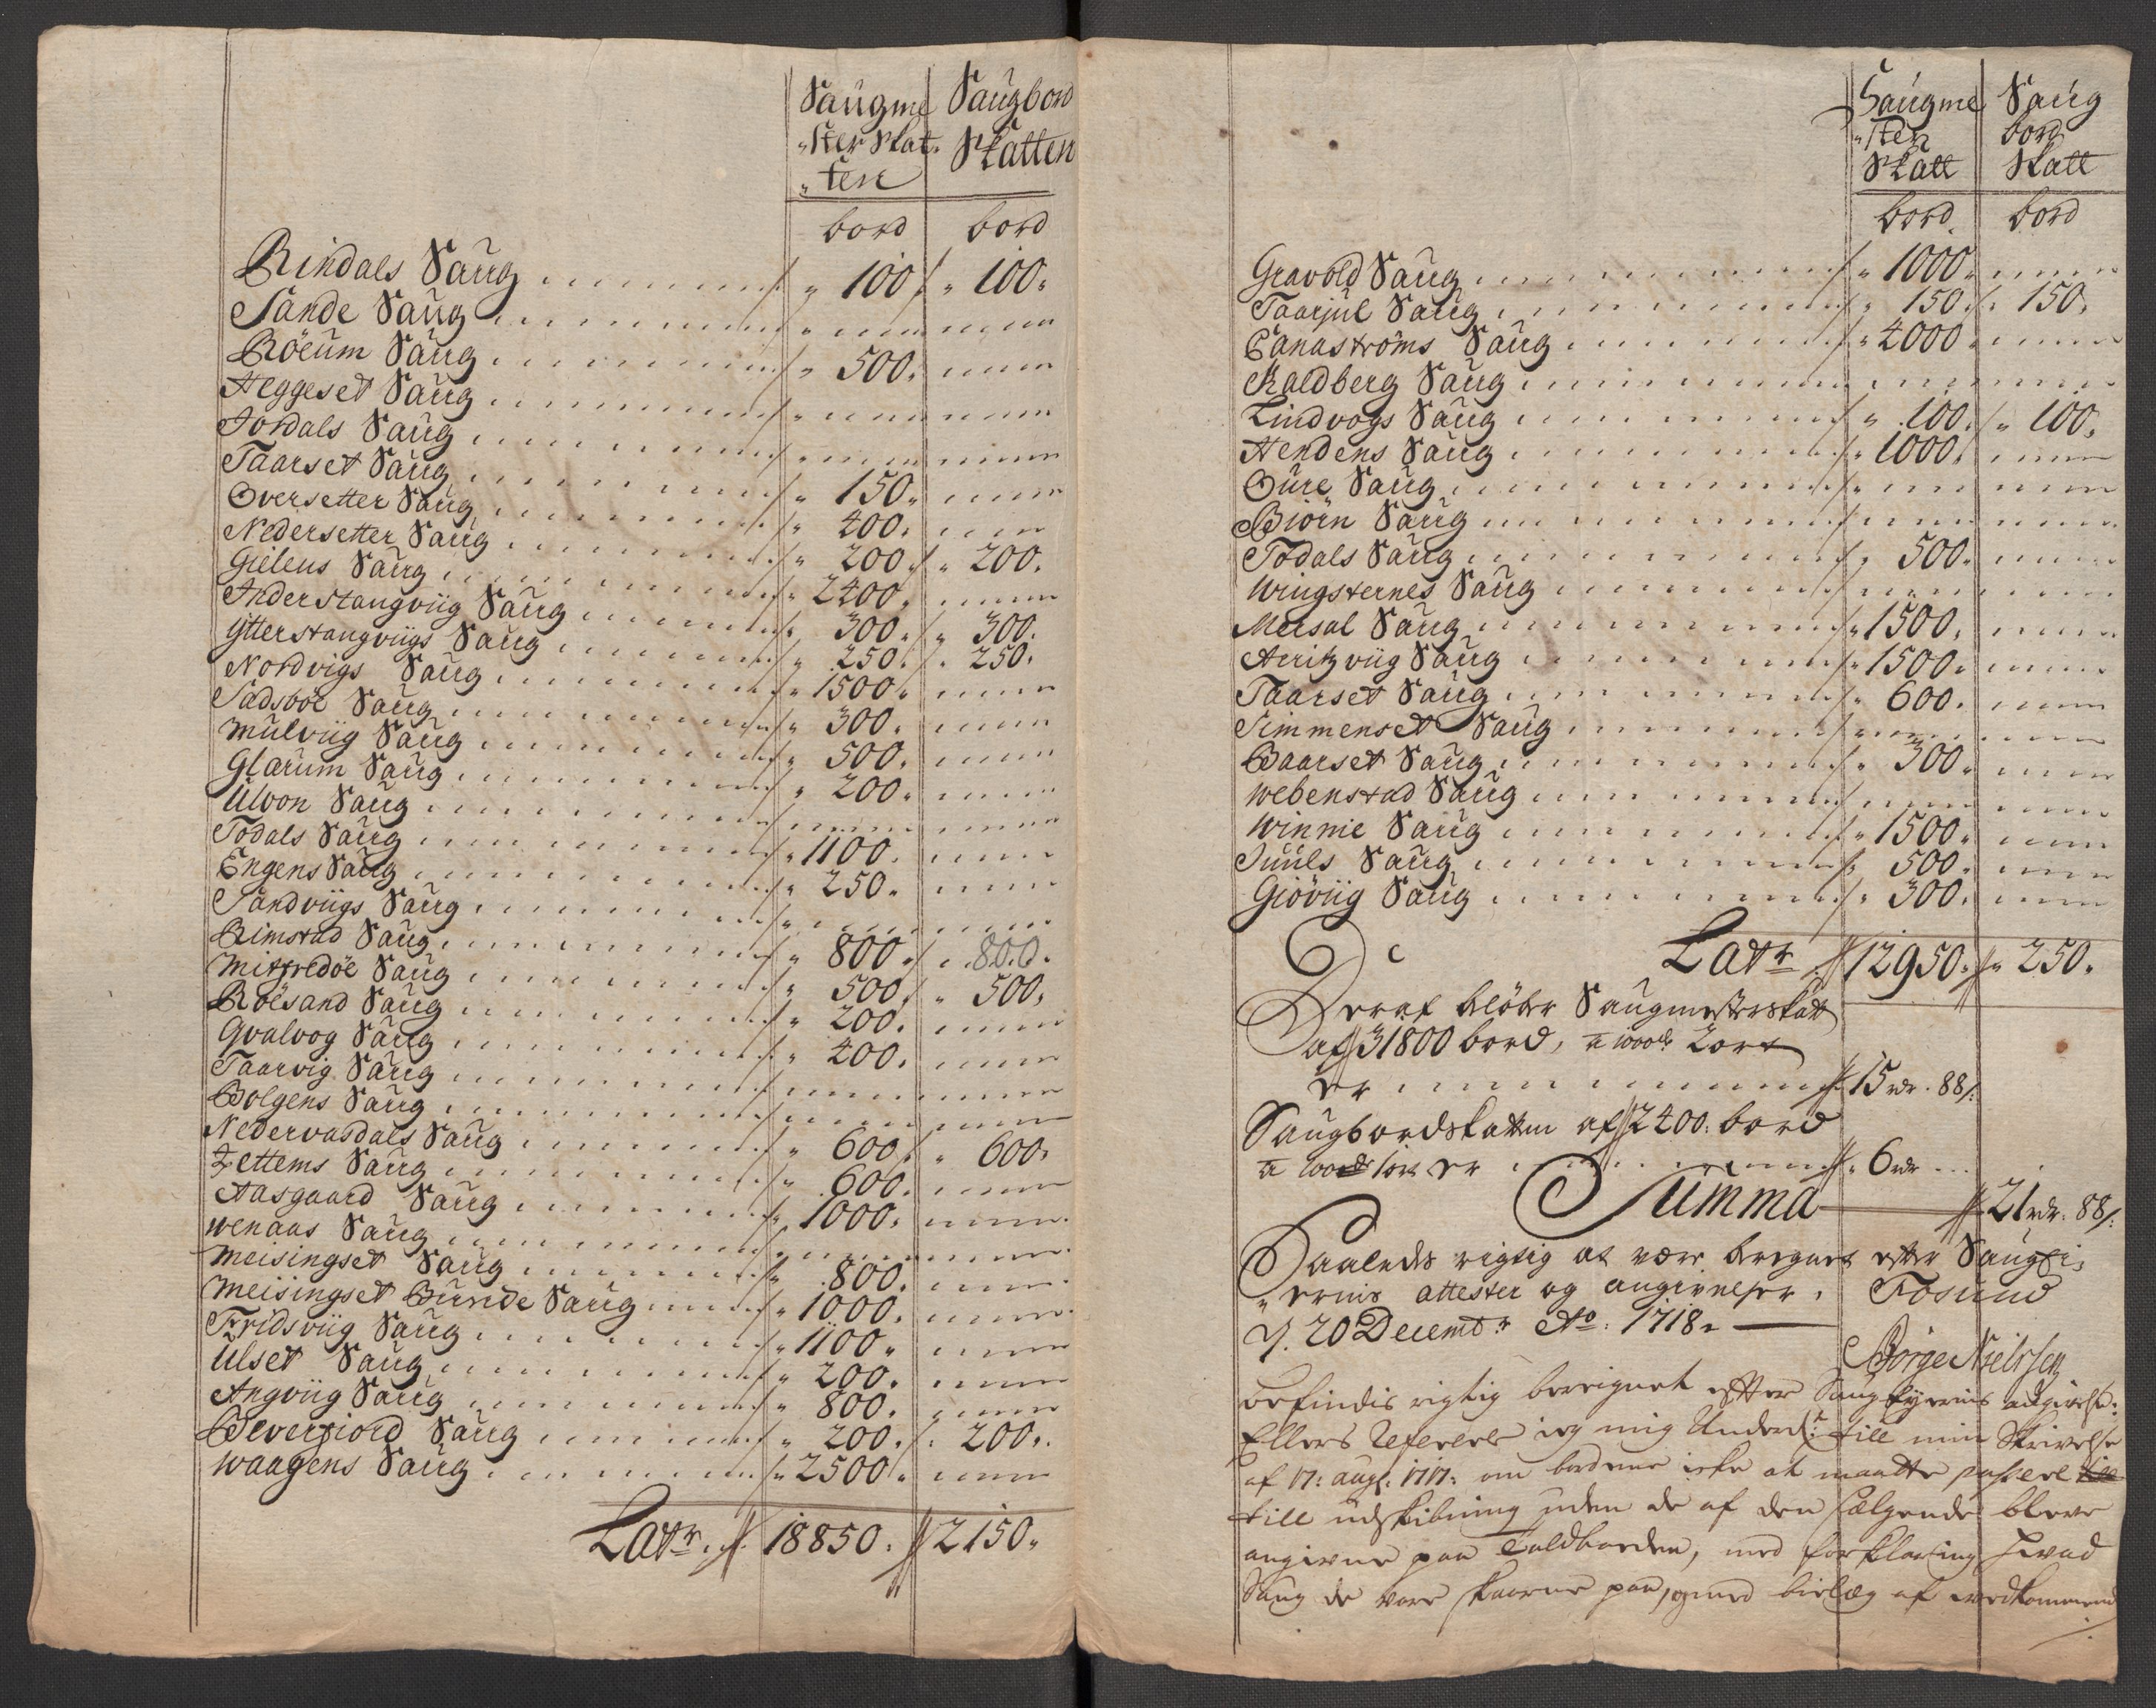 Saugme Saugbord
"ster Skat= Skatten
"ten
bord bord
Rindals Saug 100 100
Sande Saug
Röeum Saug 500
Heggeset Saug
Jordals Saug
Taarset Saug 150
Oversetter Saug 400
Nedersetter Saug 200 200
Gielens Saug 2400
Inderstangviig Saug 300 300
Ytterstangviigs Saug 250 250
Nordvigs Saug 1500
Sadsböe Saug 300
Mulviig Saug 500
Glarum Saug 200
Ulvon Saug
Todals Saug 1100
Engens Saug 250
Sandviigs Saug
Rimstad Saug 800 800
Mitfredöe Saug 500 500
Röesand Saug 200
Qvalvog Saug 400
Taarvig Saug
Bolgens Saug
Nedervasdals Saug 600 600
Zettems Saug 600
Aasgaard Saug 1000
Wenaas Saug
Meisingset Saug 800
Meisingset Bunde Saug 1000
Fridsviig Saug 1100
Ulset Saug 200
Angviig Saug 800
Beverfiord Saug 200 200
Waagens Saug 2500
Latr 18850 2150
Saugme Saug
"ster bord
Skatt Skatt
bord bord
Gravold Saug 1000
Taarjul Saug 150 150
Canaströms Saug 4000
Kaldberg Saug
Lindvogs Saug 100 100
Hendens Saug 1000
Oure Saug
Biörn Saug
Todals Saug 500
Wingsternes Saug
Meisal Saug 1500
Aeritzviig Saug 1500
Taarset Saug 600
Simmenset Saug
Baarset Saug 300
Webenstad Saug
Winnie Saug 1500
Juuls Saug 500
Giöviig Saug 300
Latr 12950 250
Deraf belöber Saugmesterskatt
af 31800 bord, a 1000de 2 ort
er 15 rdr. 88 s:
Saugbordskatten af 2400 bord
a 100de 1 ort er 6 rdr
Summa 21 rdr: 88 s:
Saaledis rigtig at være beregnet efter Saugei=
"ernis attester og angivelser, Fosund
d. 20 Decembr Ao: 1718
Börge Nielssen
befindis rigtig beregnet efter Saug Eyernis angivelse:
Ellers refererer ieg mig Underd: till min Skrivelse
af 17: aug: 1717: om bordene icke at maatte passere
till udskibning uden de af den sælgende bleve
angivne paa Toldboeden, med forklaring hvad
Saug de vare skaarne paa, og med bielæg af vedkommend